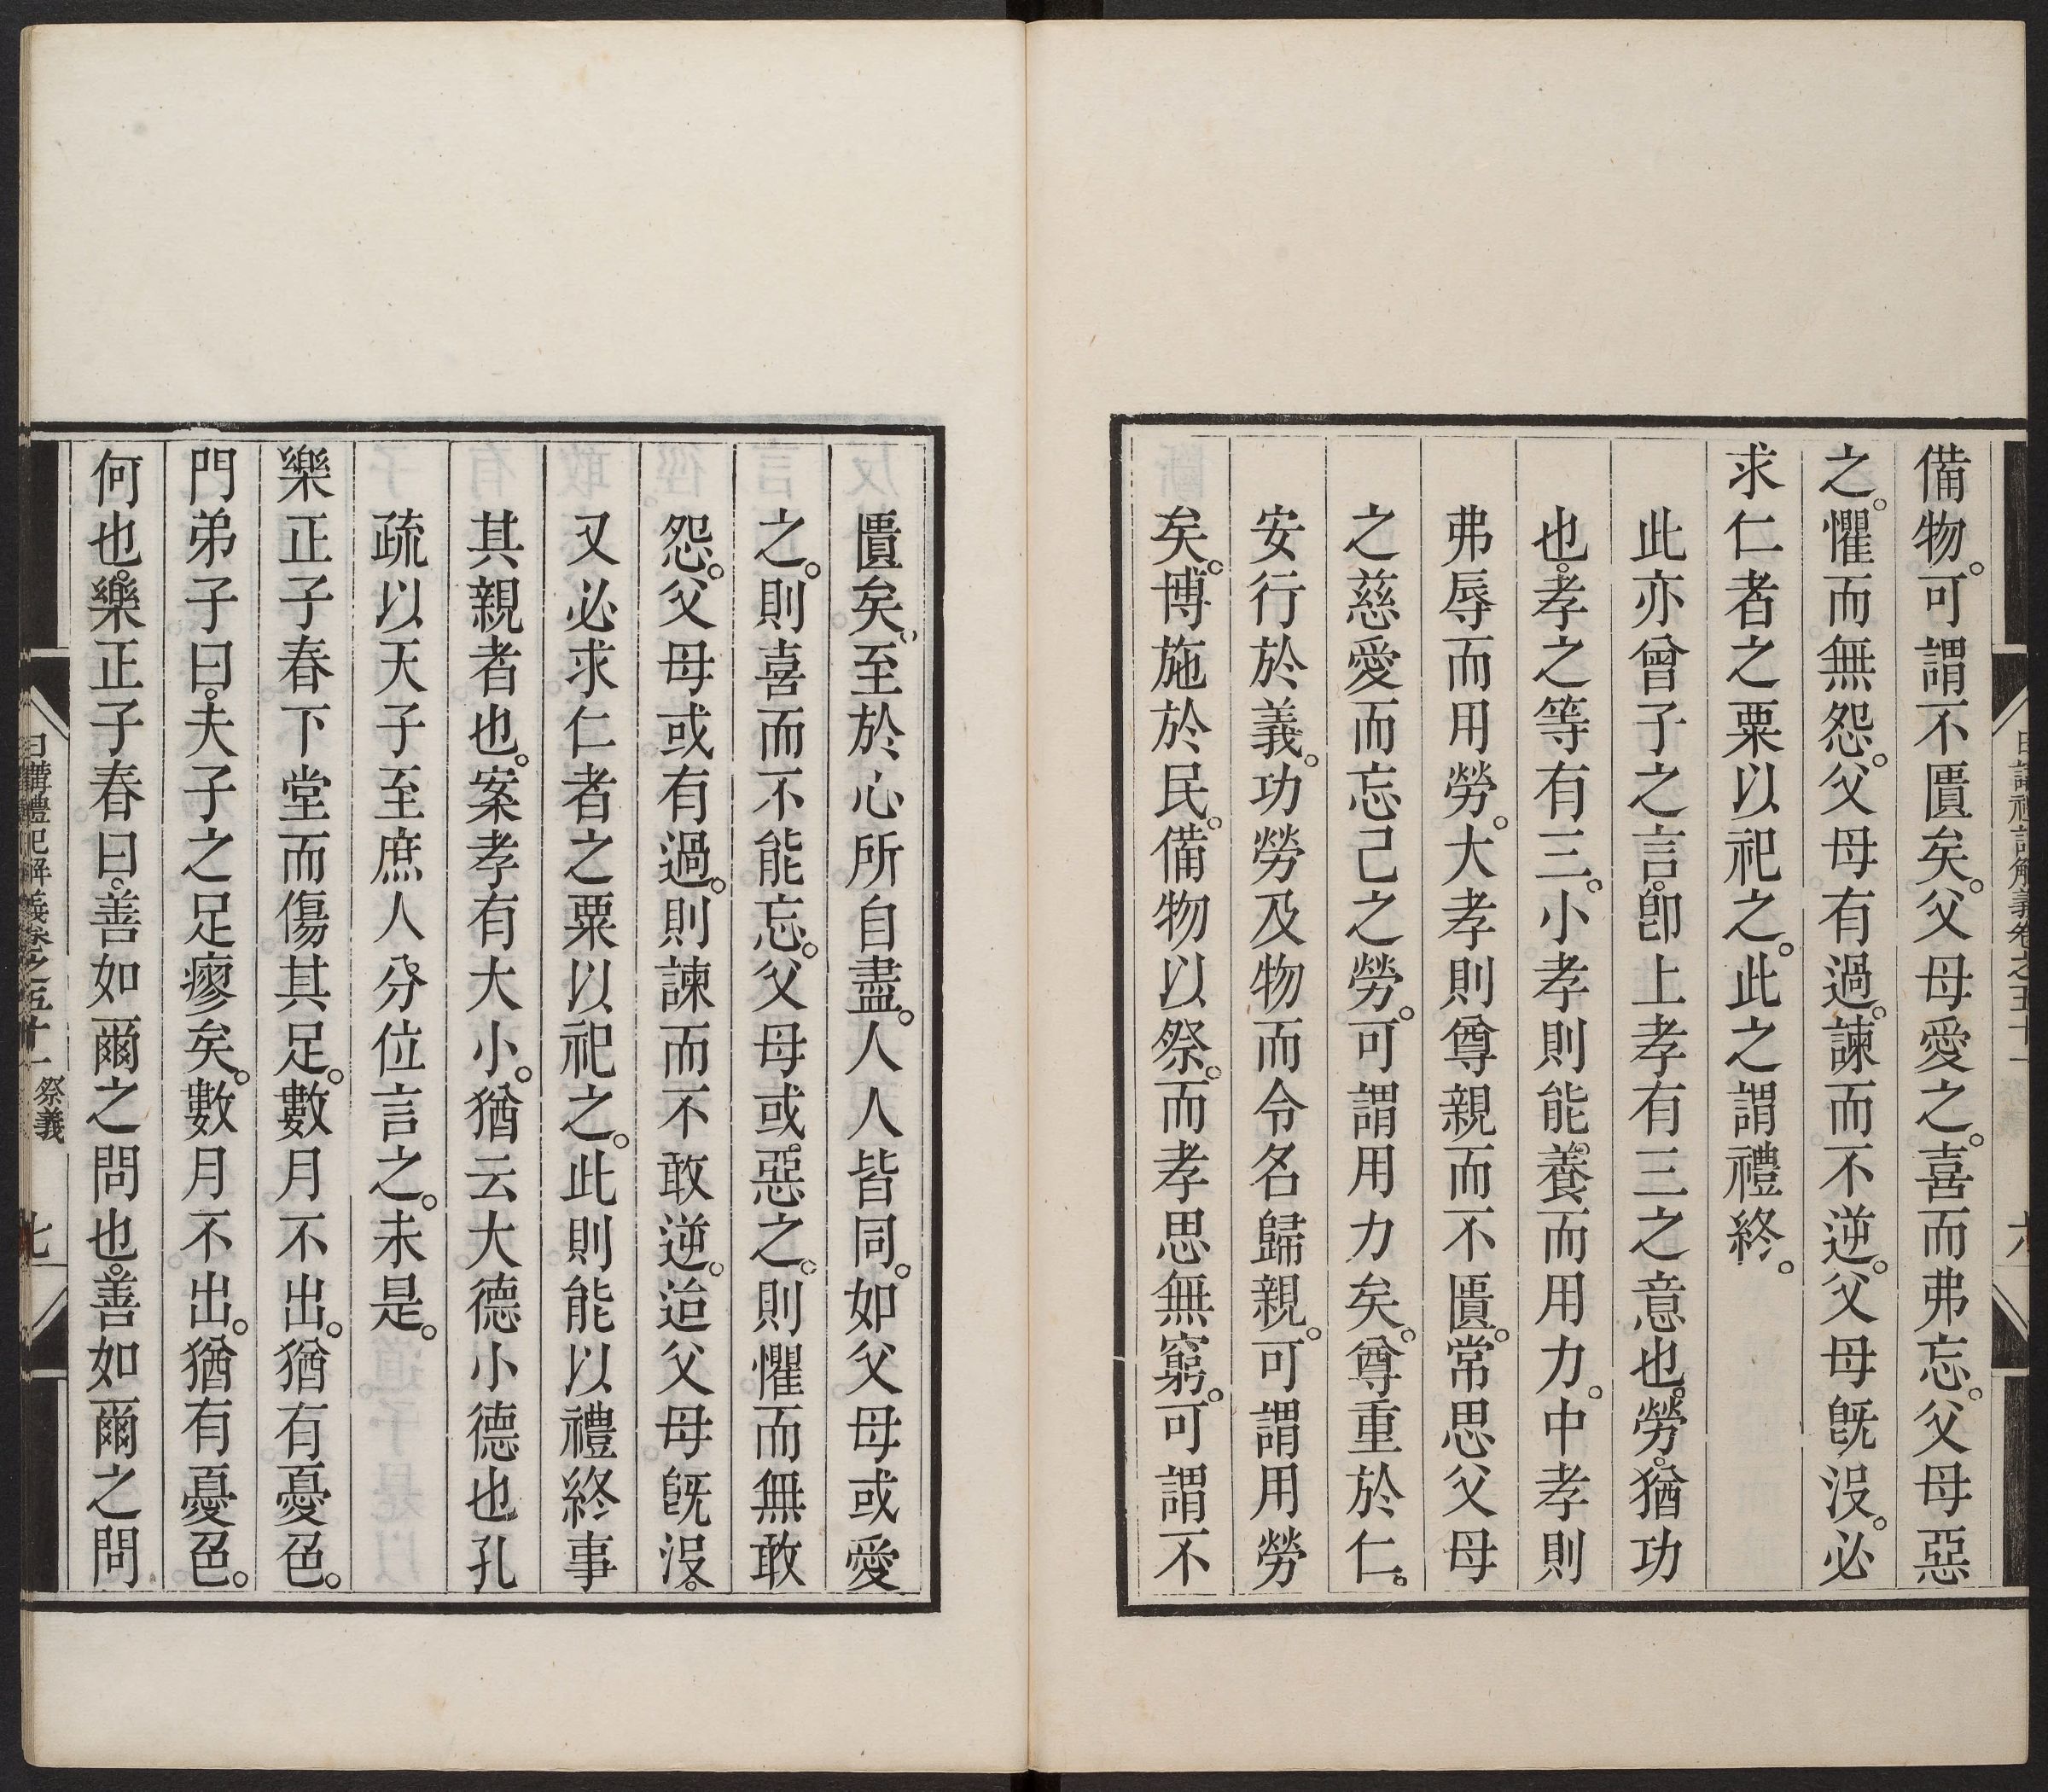 備物。可謂不匱矣。父母愛之。喜而弗忘。父母惡
之。懼而無怨。父母有過。諫而不逆。父母旣沒。必
求仁者之粟以祀之。此之謂禮終。
此亦曾子之言。卽上孝有三之意也。勞。猶功
也。孝之等有三。小孝則能養而用力。中孝則
弗辱而用勞。大孝則尊親而不匱。常思父母
之慈愛而忘己之勞。可謂用力矣。尊重於仁。
安行於義。功勞及物而令名歸親。可謂用勞
矣。博施於民。備物以祭。而孝思無窮。可謂不
日講禮記解義卷之五十一
六
匱矣。至於心所自盡。人人皆同。如父母或愛
之。則喜而不能忘。父母或惡之。則懼而無敢
怨。父母或有過。則諫而不敢逆。迨父母旣沒。
又必求仁者之粟以祀之。此則能以禮終事
其親者也。案孝有大小。猶云大德小德也孔
疏以天子至庶人分位言之。未是。
樂正子春下堂而傷其足。數月不出。猶有憂色。
門弟子曰。夫子之足瘳矣。數月不出。猶有憂色。
何也。樂正子春曰。善如爾之問也。善如爾之問
日講禮記解義卷之五十一 祭義
七